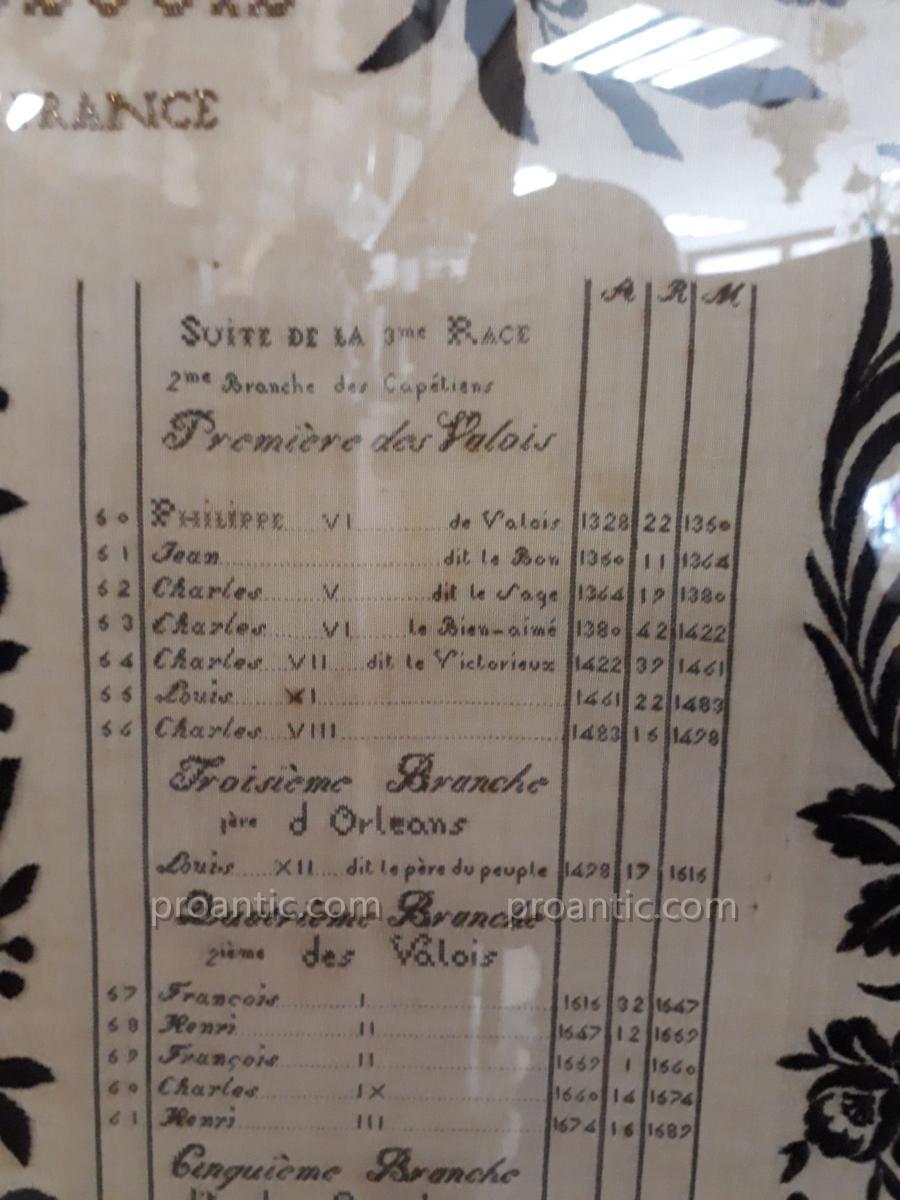 FRANCE
A R M
SUITE DE LA 3me RACE
2me Branche des Capétiens
Première des Valois
50 PHILIPPE VI de Valois 1328 22 1350
51 Jean dit le Bon 1350 11 1364
52 Charles V dit le Sage 1364 19 1380
53 Charles VI le Bien-aimé 1380 42 1422
54 Charles VII dit le Victorieux 1422 39 1461
55 Louis XI 1461 22 1483
56 Charles VIII 1483 15 1498
Troisième Branche
1ère d Orleans
Louis XII dit le père du peuple 1498 17 1515
Quatrième Branche
proantic.com proantic.com
2ième des Valois
57 François I 1515 32 1547
58 Henri II 1547 12 1559
59 François II 1559 1 1560
60 Charles IX 1560 14 1574
61 Henri III 1574 15 1589
Cinquième Branche